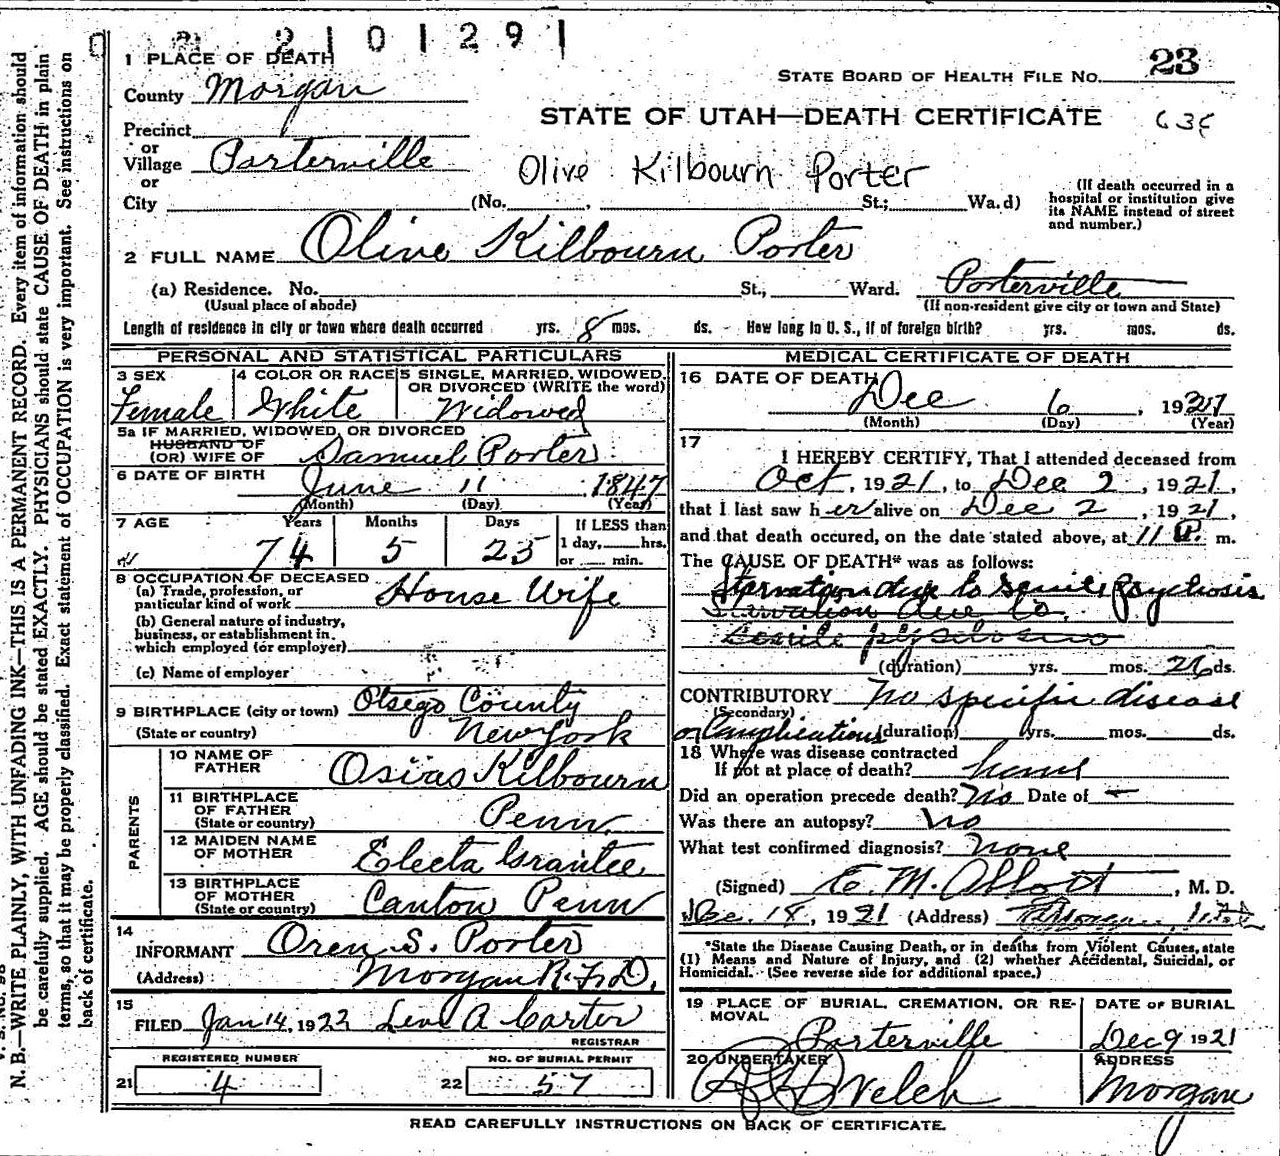 2 1 0 1 2 9 1
23
1 PLACE OF DEATH
STATE BOARD OF HEALTH FILE NO.
County Morgan
STATE OF UTAH—DEATH CERTIFICATE
Precinct
or
Village Porterville
Olive Kilbourn Porter
or
City (No. , St.; Wa.d)
(If death occurred in a
hospital or institution give
its NAME instead of street
and number.)
2 FULL NAME Olive Kilbourn Porter
(a) Residence. No. St., Ward. Porterville
(Usual place of abode) (If non-resident give city or town and State)
Length of residence in city or town where death occurred yrs. 8 mos. ds. How long in U. S., if of foreign birth? yrs. mos. ds.
PERSONAL AND STATISTICAL PARTICULARS
3 SEX 4 COLOR OR RACE 5 SINGLE, MARRIED, WIDOWED,
OR DIVORCED (WRITE the word)
Female White Widowed
5a IF MARRIED, WIDOWED, OR DIVORCED
HUSBAND OF
(OR) WIFE OF Samuel Porter
6 DATE OF BIRTH June 11 1847
(Month) (Day) (Year)
7 AGE Years Months Days If LESS than
74 5 25 1 day, hrs.
or min.
8 OCCUPATION OF DECEASED
(a) Trade, profession, or
particular kind of work House Wife
(b) General nature of industry,
business, or establishment in
which employed (or employer)
(c) Name of employer
9 BIRTHPLACE (city or town) Otsego County
(State or country) New York
PARENTS
10 NAME OF
FATHER Osias Kilbourn
11 BIRTHPLACE
OF FATHER
(State or country) Penn
12 MAIDEN NAME
OF MOTHER Electa Grantee
13 BIRTHPLACE
OF MOTHER
(State or country) Canton Penn
14
INFORMANT Oren S. Porter
(Address) Morgan R.F.D.
15
FILED Jan 14, 1922 Levi A Carter
REGISTRAR
REGISTERED NUMBER NO. OF BURIAL PERMIT
21 4 22 57
MEDICAL CERTIFICATE OF DEATH
16 DATE OF DEATH
Dec 6, 1921
(Month) (Day) (Year)
17
I HEREBY CERTIFY, That I attended deceased from
Oct, 1921, to Dec 2, 1921,
that I last saw h er alive on Dec 2, 1921,
and that death occured, on the date stated above, at 11 P. m.
The CAUSE OF DEATH* was as follows:
Starvation due to Senile psychosis
Starvation due to
Senile psychosis
(duration) yrs. mos. 26 ds.
CONTRIBUTORY No specific disease
(Secondary)
or Complications (duration) yrs. mos. ds.
18 Where was disease contracted
If not at place of death? home
Did an operation precede death? No Date of —
Was there an autopsy? No
What test confirmed diagnosis? None
(Signed) E. M. Abbott, M. D.
Dec. 18, 1921 (Address) Morgan, Utah
*State the Disease Causing Death, or in deaths from Violent Causes, state
(1) Means and Nature of Injury, and (2) whether Accidental, Suicidal, or
Homicidal. (See reverse side for additional space.)
19 PLACE OF BURIAL, CREMATION, OR RE-
MOVAL DATE OF BURIAL
Porterville Dec 9 1921
20 UNDERTAKER ADDRESS
Welch Morgan
READ CAREFULLY INSTRUCTIONS ON BACK OF CERTIFICATE.
N. B.—WRITE PLAINLY, WITH UNFADING INK—THIS IS A PERMAMENT RECORD. Every item of information should
be carefully supplied. AGE should be stated EXACTLY. PHYSICIANS should state CAUSE OF DEATH in plain
terms, so that it may be properly classified. Exact statement of OCCUPATION is very important. See instructions on
back of certificate.